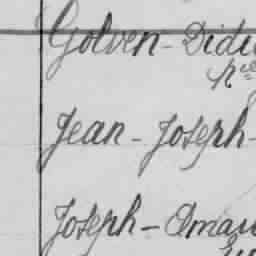 Golven - Didi
Jean - Joseph -
Joseph - Aman